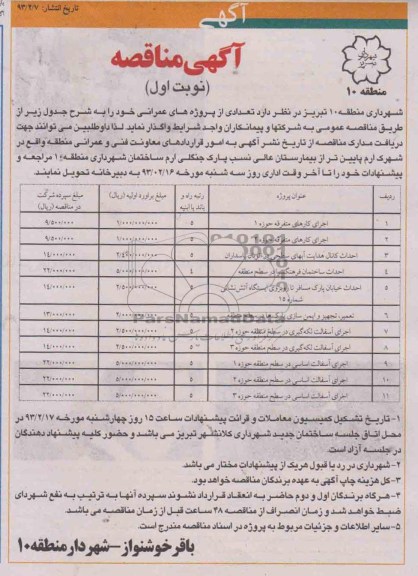 تاریخ انتشار: ۹۳/۲/۷
آگهی
آگهی مناقصه
(نوبت اول)
شهرداری تبریز
منطقه ۱۰
شهرداری منطقه ۱۰ تبریز در نظر دارد تعدادی از پروژه های عمرانی خود را به شرح جدول زیر از
طریق مناقصه عمومی به شرکتها و پیمانکاران واجد شرایط واگذار نماید لذا داوطلبین می توانند جهت
دریافت مدارک مناقصه از تاریخ نشر آگهی به امور قراردادهای معاونت فنی و عمرانی منطقه واقع در
شهرک ارم پایین تر از بیمارستان عالی نسب پارک جنگلی ارم ساختمان شهرداری منطقه۱۰ مراجعه و
پیشنهادات خود را تا آخر وقت اداری روز سه شنبه مورخه ۹۳/۰۲/۱۶ به دبیرخانه تحویل نمایند
ردیف عنوان پروژه رتبه راه و باند یا ابنیه مبلغ براورد اولیه (ریال) مبلغ سپرده شرکت در مناقصه (ریال)
۱ اجرای کارهای متفرقه حوزه ۱ ۵ ۱/۰۰۰/۰۰۰/۰۰۰ ۹/۵۰۰/۰۰۰
۲ اجرای کارهای متفرقه حوزه ۵ ۱/۰۰۰/۰۰۰/۰۰۰ ۹/۵۰۰/۰۰۰
۳ احداث کانال هدایت آبهای سطحی پاسداران ۵ ۱۴/۰۰۰/۰۰۰
۴ احداث ساختمان فرهنگی در سطح منطقه ۵/۰۰۰/۰۰۰/۰۰۰ ۲۲/۰۰۰/۰۰۰
۵ احداث خیابان پارک مسافر تا ایستگاه آتش نشانی شماره ۱۵ ۵ ۱۴/۰۰۰/۰۰۰
۶ تعمیر، تجهیز و ایمن سازی ۱۳/۰۰۰/۰۰۰
۷ اجرای آسفالت لکه گیری در سطح منطقه حوزه ۲ ۱۴/۰۰۰/۰۰۰
۸ اجرای آسفالت لکه گیری در سطح منطقه حوزه ۳ ۵ ۱۴/۰۰۰/۰۰۰
۹ اجرای آسفالت اساسی در سطح منطقه حوزه ۱ ۵ ۵/۰۰۰/۰۰۰/۰۰۰ ۲۲/۰۰۰/۰۰۰
۱۰ اجرای آسفالت اساسی در سطح منطقه حوزه ۲ ۵ ۵/۰۰۰/۰۰۰/۰۰۰ ۲۲/۰۰۰/۰۰۰
۱۱ اجرای آسفالت اساسی در سطح منطقه حوزه ۳ ۵ ۵/۰۰۰/۰۰۰/۰۰۰ ۲۲/۰۰۰/۰۰۰
ParsNamadData
۱- تاریخ تشکیل کمیسیون معاملات و قرائت پیشنهادات ساعت ۱۵ روز چهارشنبه مورخه ۹۳/۲/۱۷ در
محل اتاق جلسه ساختمان جدید شهرداری کلانشهر تبریز می باشد و حضور کلیه پیشنهاد دهندگان
در جلسه آزاد است.
۲- شهرداری در رد یا قبول هریک از پیشنهادات مختار می باشد.
۳- کل هزینه چاپ آگهی به عهده برندگان مناقصه خواهد بود.
۴- هرگاه برندگان اول و دوم حاضر به انعقاد قرارداد نشوند سپرده آنها به ترتیب به نفع شهرداری
ضبط خواهد شد و زمان انصراف از مناقصه ۴۸ ساعت قبل از زمان مناقصه می باشد.
۵- سایر اطلاعات و جزئیات مربوط به پروژه در اسناد مناقصه مندرج است.
باقر خوشنواز – شهردار منطقه۱۰